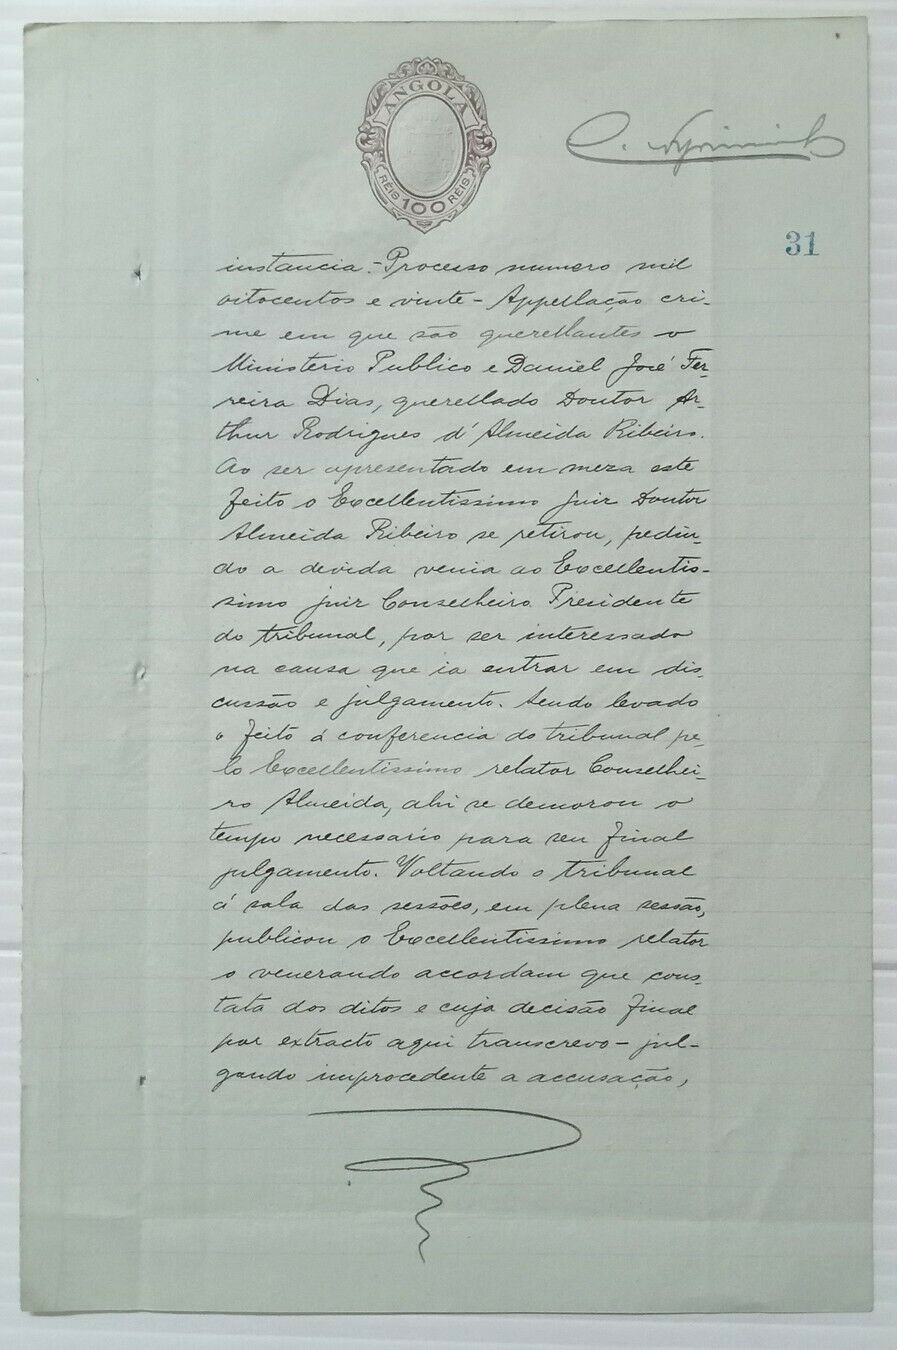 ANGOLA
RÉIS 100 RÉIS
31
instancia.-Processo numero mil
oitocentos e vinte-Appellação cri-
me em que são querellantes o
Ministerio Publico e Daniel José Fer-
reira Dias, querellado Doutor Ar-
thur Rodrigues d'Almeida Ribeiro.
Ao ser apresentado em meza este
feito o Excellentissimo juiz Doutor
Almeida Ribeiro se retirou, pedin-
do a devida venia ao Excellentis-
simo juiz Conselheiro Presidente
do tribunal, por ser interessado
na causa que ia entrar em dis-
cussão e julgamento. Sendo levado
o feito á conferencia do tribunal pe-
lo Excellentissimo relator Conselhei-
ro Almeida, ahi se demorou o
tempo necessario para seu final
julgamento. Voltando o tribunal
á sala das sessões, em plena sessão,
publicou o Excellentissimo relator
o venerando accordam que cons-
tata dos ditos e cuja decisão final
por extracto aqui transcrevo-jul-
gando improcedente a accusação,